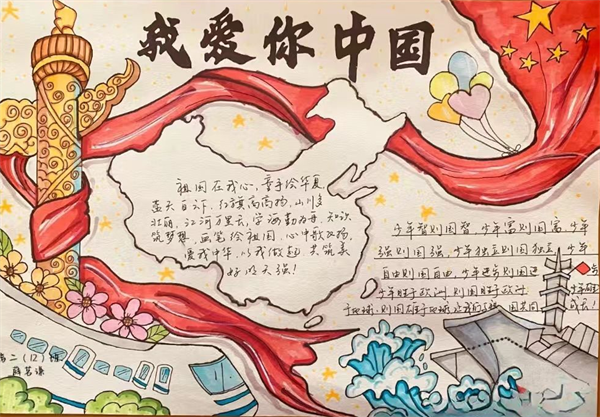 我爱你中国
祖国在我心,童手绘华夏,
蓝天白下,红旗高高扬,山川多
壮丽,江河万里长,学海勤为舟,知识
筑梦想,画笔绘祖国,心中歌飞扬,
爱我中华,以我做起,共筑美
好明天强!
少年智则国智,少年富则国富,少年
强则国强,少年独立则国独立,少年
自由则国自由,少年进步则国进
少年胜于欧洲,则国胜于欧洲,
于地球,则国雄于地球
成长!
二(12)班